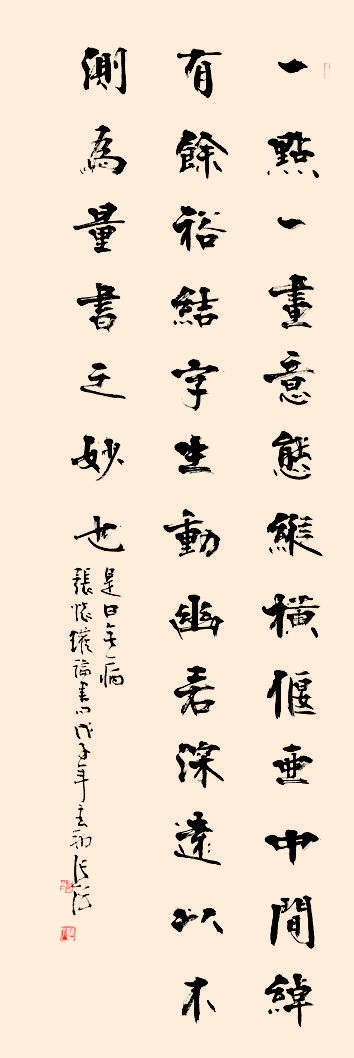 一點一畫意態縱橫偃亞中間綽
有餘裕結字生動幽若深遠以不
測為量書之妙也
是日无病
張懷瓘論書 戊子年